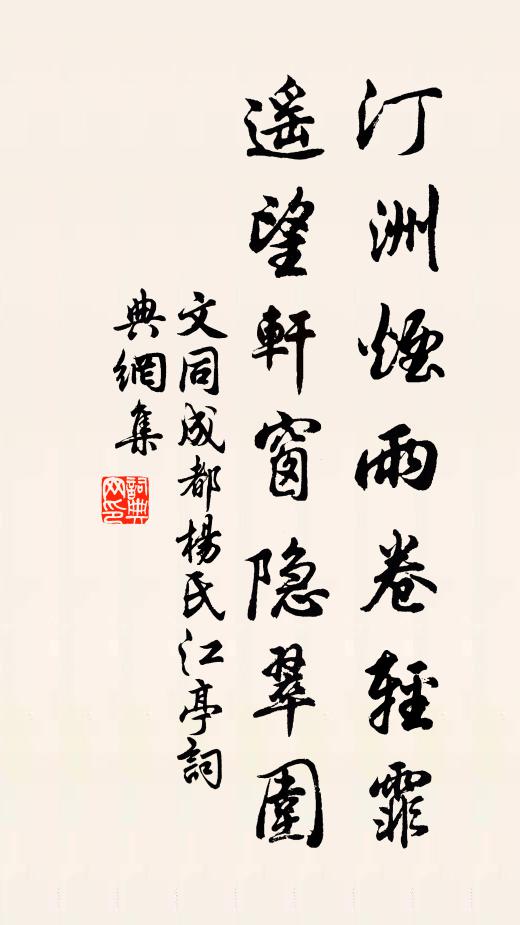 汀洲煙雨卷輕霏
遥望軒窗隐翠圍
文同成都楊氏江亭詞
典網集
詞典网印